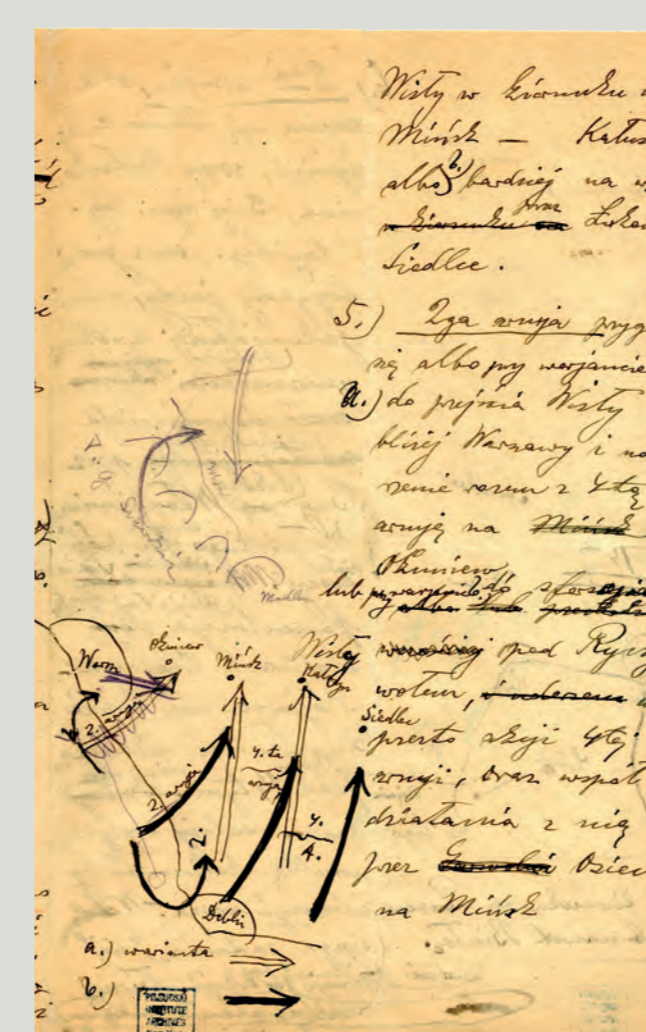 Wisły w kierunku
Mińsk — Kałus
albo b.) bardziej na w
w kierunku na przez Łuko
Siedlce.
5.) 2ga armja przyg
się albo przy warjancie
a.) do przejścia Wisły
bliżej Warszawy i na
rzenie razem z 4tą
armją na Mińsk
Okuniew,
lub przy warjancie b. do sforso
Wisły pod Rycz
wołem, i uderzenia
prosto akcji 4tej
armji, oraz współ
działania z nią
przez Garwolin Osiec
na Mińsk
Modlin
Warsz
Okuniew
Mińsk
Kałusz
Siedlce
2. armja
2. armja
4.ta
armja
2.
4.
A.
Dęblin
a.) warianta
b.)
PILSUDSKI
INSTITUTE
ARCHIVES